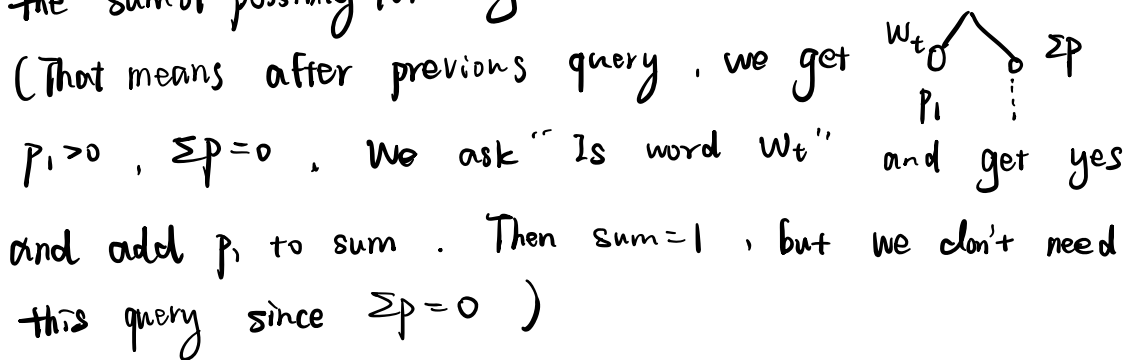 the sum of possing for
(That means after previous query, we get
Wt Σp
P1
P1>0, Σp=0. We ask "Is word Wt" and get yes
and add P1 to sum. Then sum=1, but we don't need
this query since Σp=0)